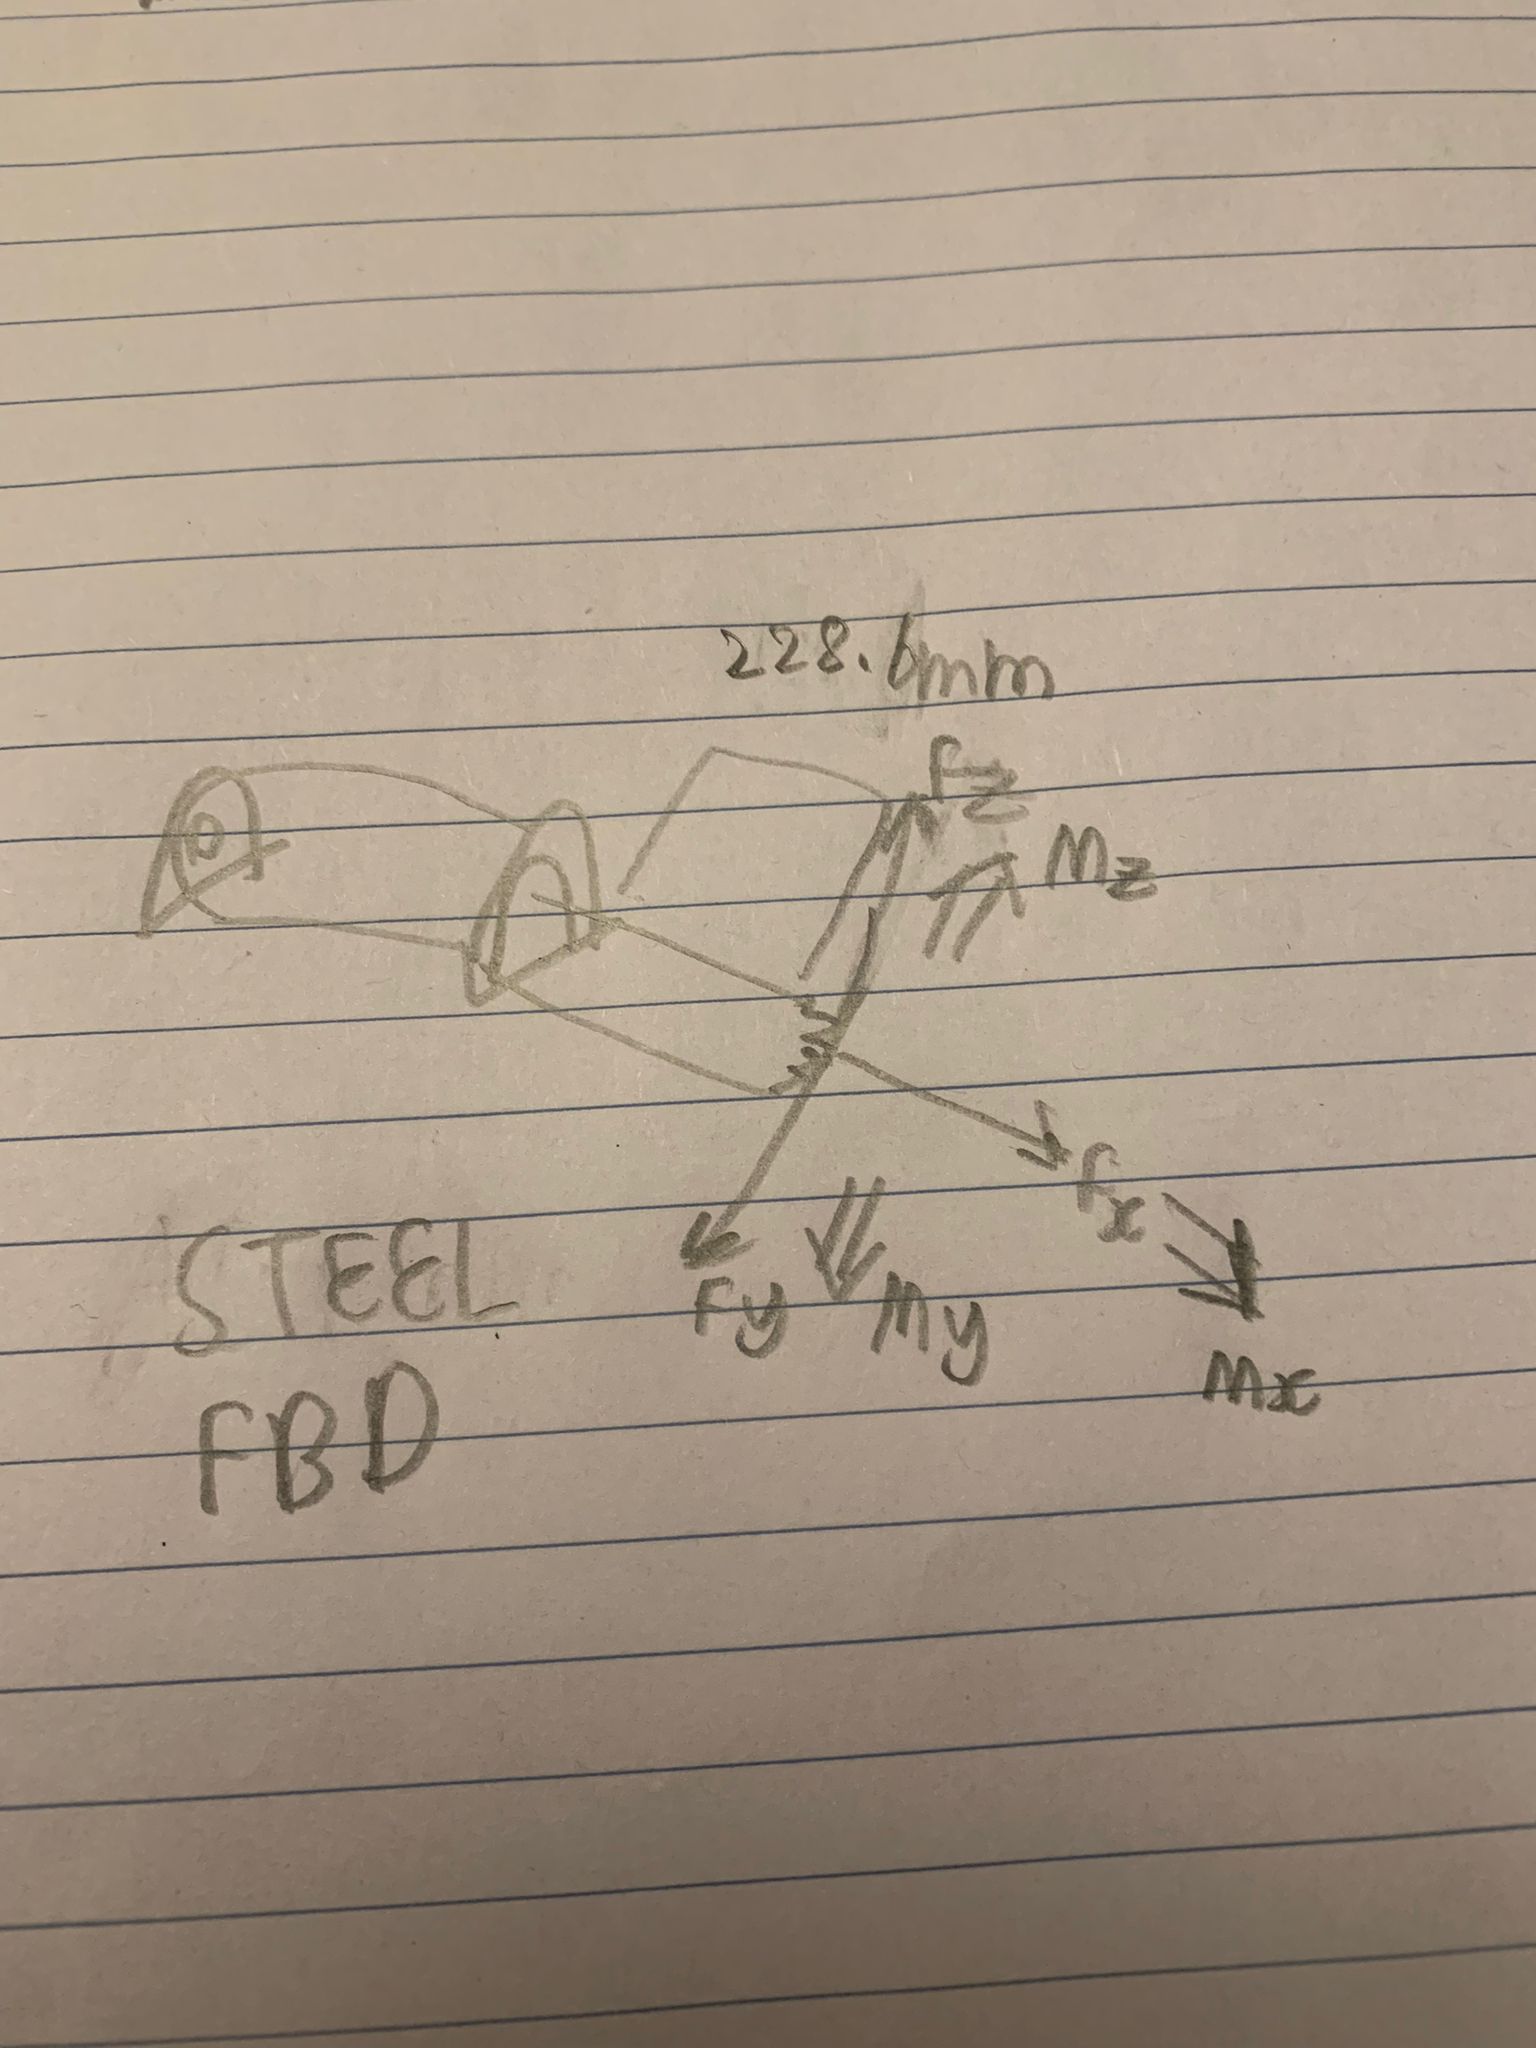 228.6mm
Fz
Mz
Fx
Fy
My
Mx
STEEL
FBD